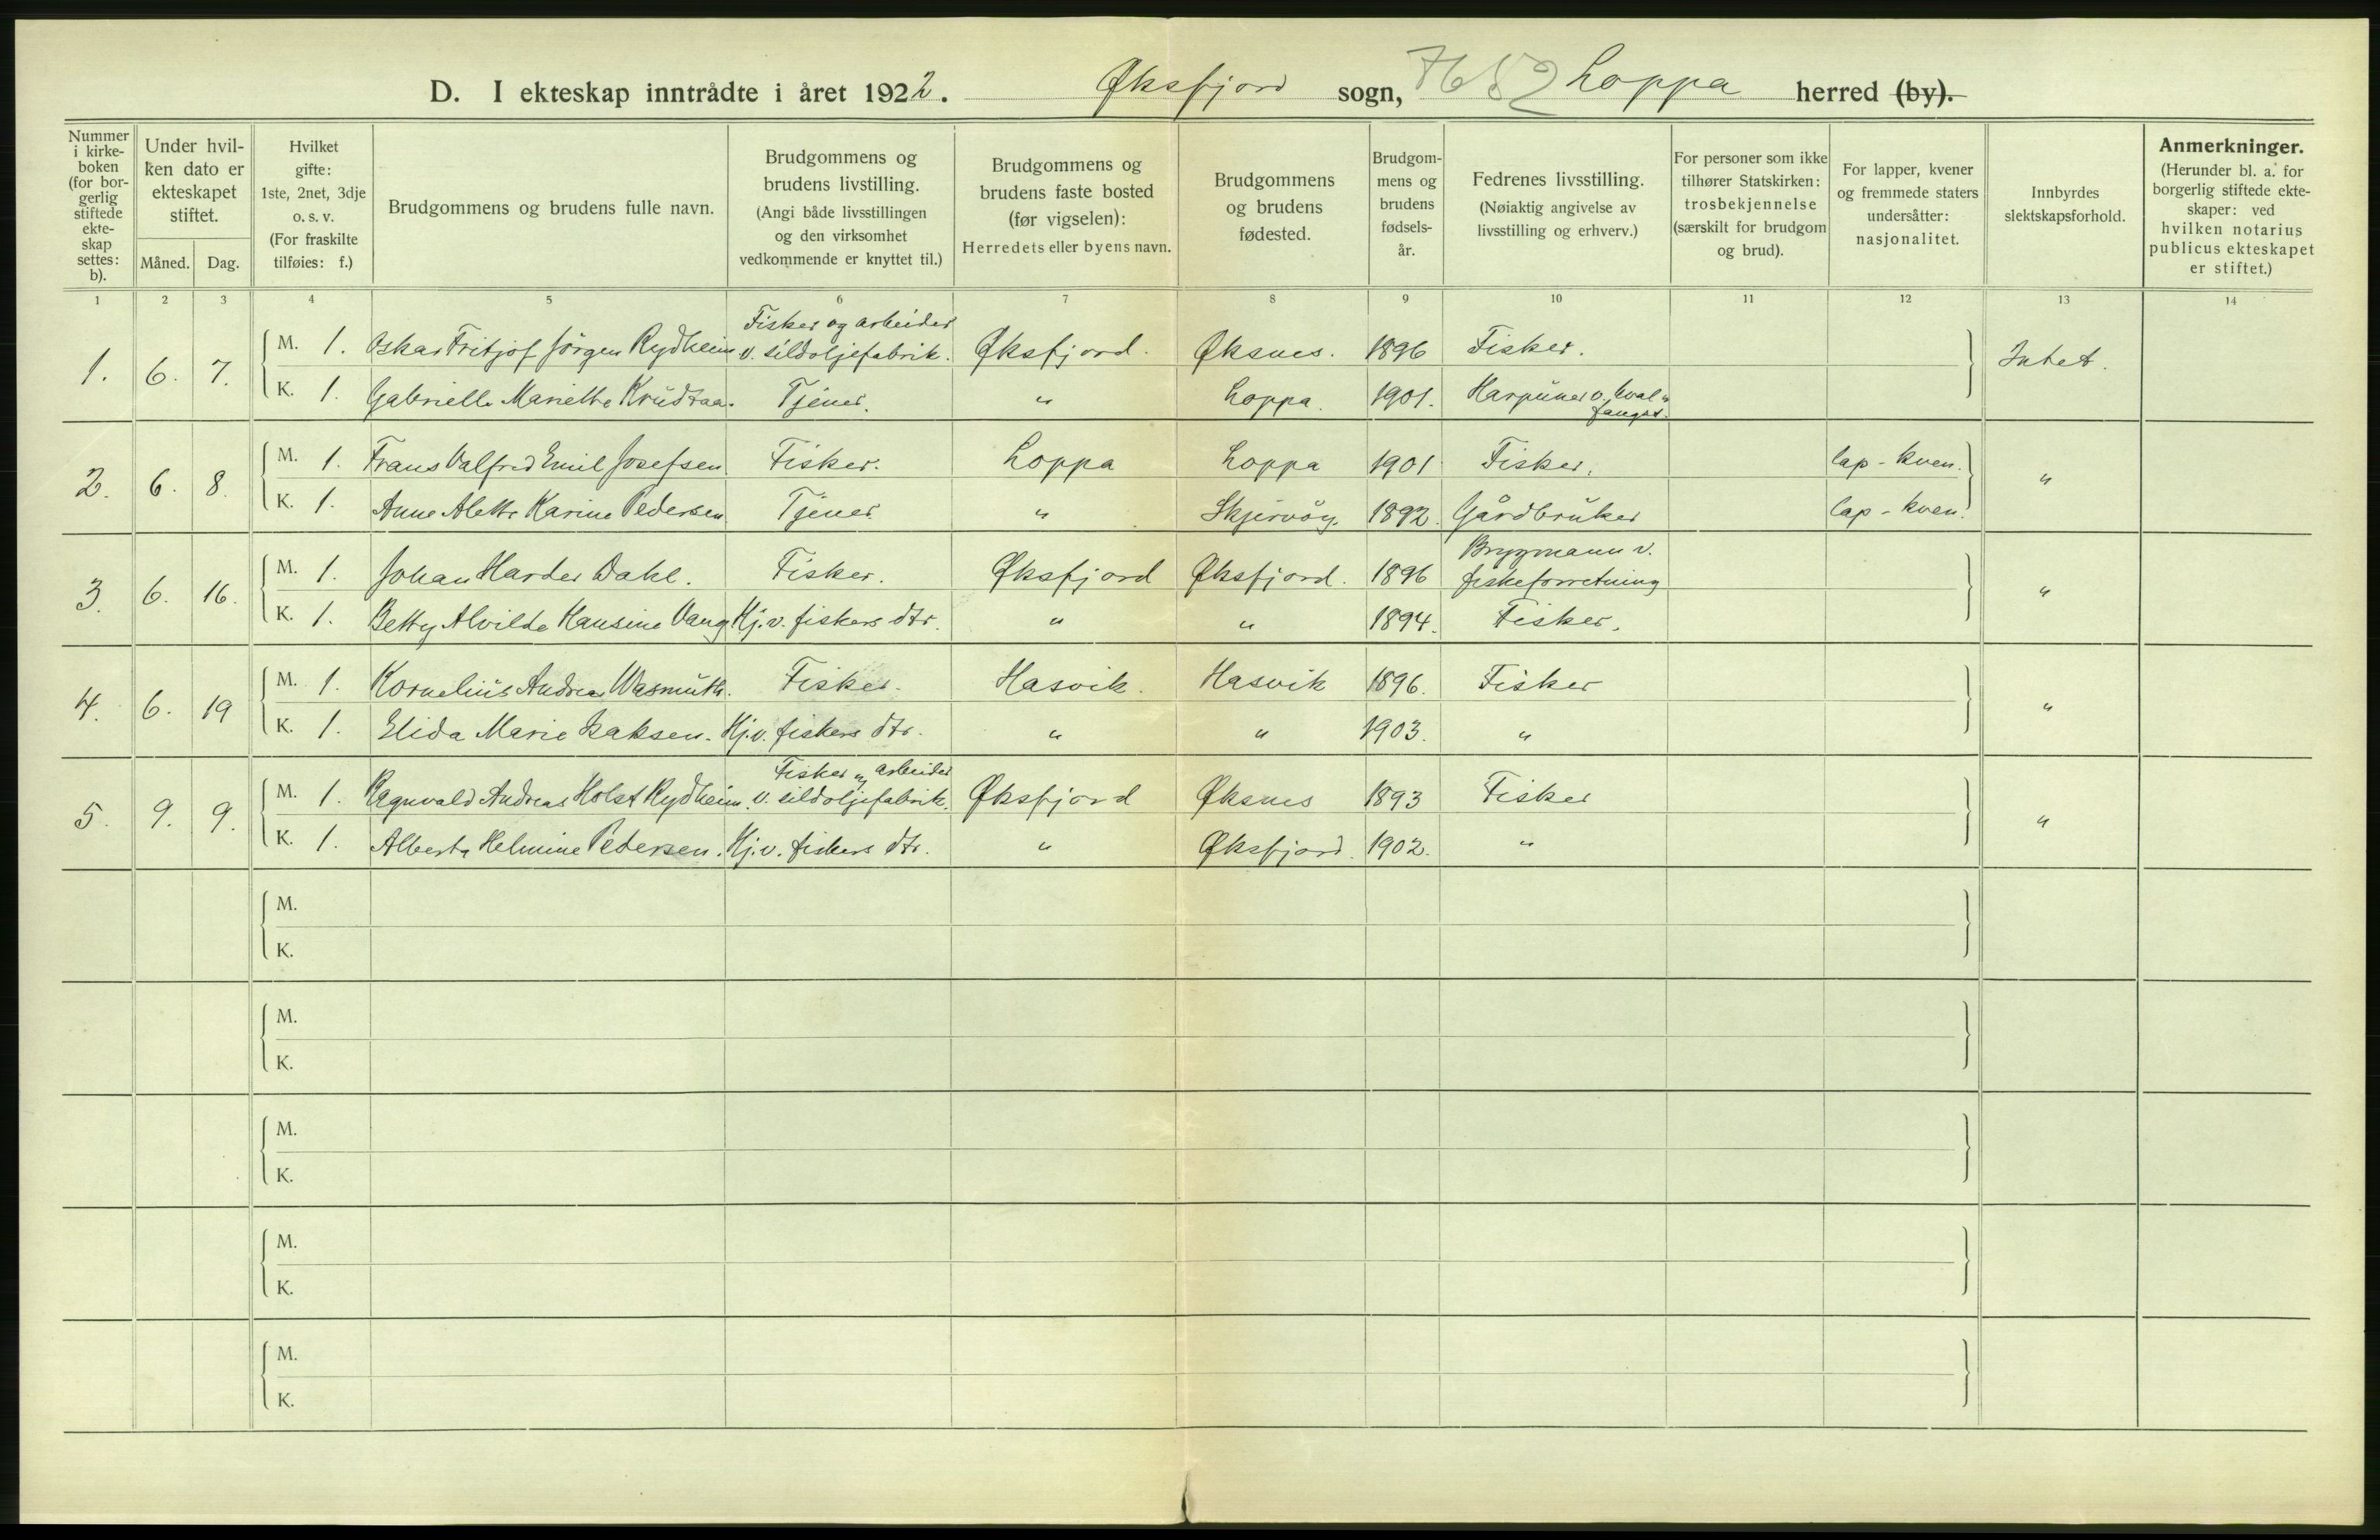 D. I ekteskap inntrådte i året 1922. Øksfjord sogn, 7652 Loppa herred (by).
Nummer i kirkeboken (for borgerlig stiftede ekteskap settes: b).
Under hvilken dato er ekteskapet stiftet.
Måned. Dag.
Hvilket gifte: 1ste, 2net, 3dje o. s. v. (For fraskilte tilføies: f.)
Brudgommens og brudens fulle navn.
Brudgommens og brudens livstilling. (Angi både livsstillingen og den virksomhet vedkommende er knyttet til.)
Brudgommens og brudens faste bosted (før vigselen): Herredets eller byens navn.
Brudgommens og brudens fødested.
Brudgommens og brudens fødselsår.
Fedrenes livsstilling. (Nøiaktig angivelse av livsstilling og erhverv.)
For personer som ikke tilhører Statskirken: trosbekjennelse (særskilt for brudgom og brud).
For lapper, kvener og fremmede staters undersåtter: nasjonalitet.
Innbyrdes slektskapsforhold.
Anmerkninger. (Herunder bl. a. for borgerlig stiftede ekteskaper: ved hvilken notarius publicus ekteskapet er stiftet.)
1 2 3 4 5 6 7 8 9 10 11 12 13 14
1. 6. 7. M. 1. Oskar Fritjof Jörgen Rydheim Fisker og arbeider v. sildoljefabrik. Øksfjord. Øksnes. 1896 Fisker. Intet.
K. 1. Gabrielle Mariette Krudtaa. Tjener. " Loppa. 1901. Harpuner v. hvalfangst.
2. 6. 8. M. 1. Frans Valfred Emil Josefsen Fisker. Loppa Loppa 1901 Fisker. lap - kven. "
K. 1. Anne Alette Karine Pedersen Tjener " Skjervöy. 1892. Gårdbruker lap - kven.
3. 6. 16. M. 1. Johan Harder Dahl. Fisker. Øksfjord Øksfjord. 1896 Bryggmann v. fiskeforretning "
K. 1. Betty Alvilde Hansine Vang Hj.v. fiskers dtr. " " 1894. Fisker.
4. 6. 19 M. 1. Kornelius Andreas Wasmuth. Fisker. Hasvik. Hasvik 1896. Fisker "
K. 1. Elida Marie Isaksen. Hj.v. fiskers dtr. " " 1903. "
5. 9. 9. M. 1. Ragnvald Andreas Holst Rydheim. Fisker og arbeider v. sildoljefabrik. Øksfjord Øksnes 1893 Fisker "
K. 1. Alberta Helmine Pedersen. Hj.v. fiskers dtr. " Øksfjord. 1902. "
M.
K.
M.
K.
M.
K.
M.
K.
M.
K.